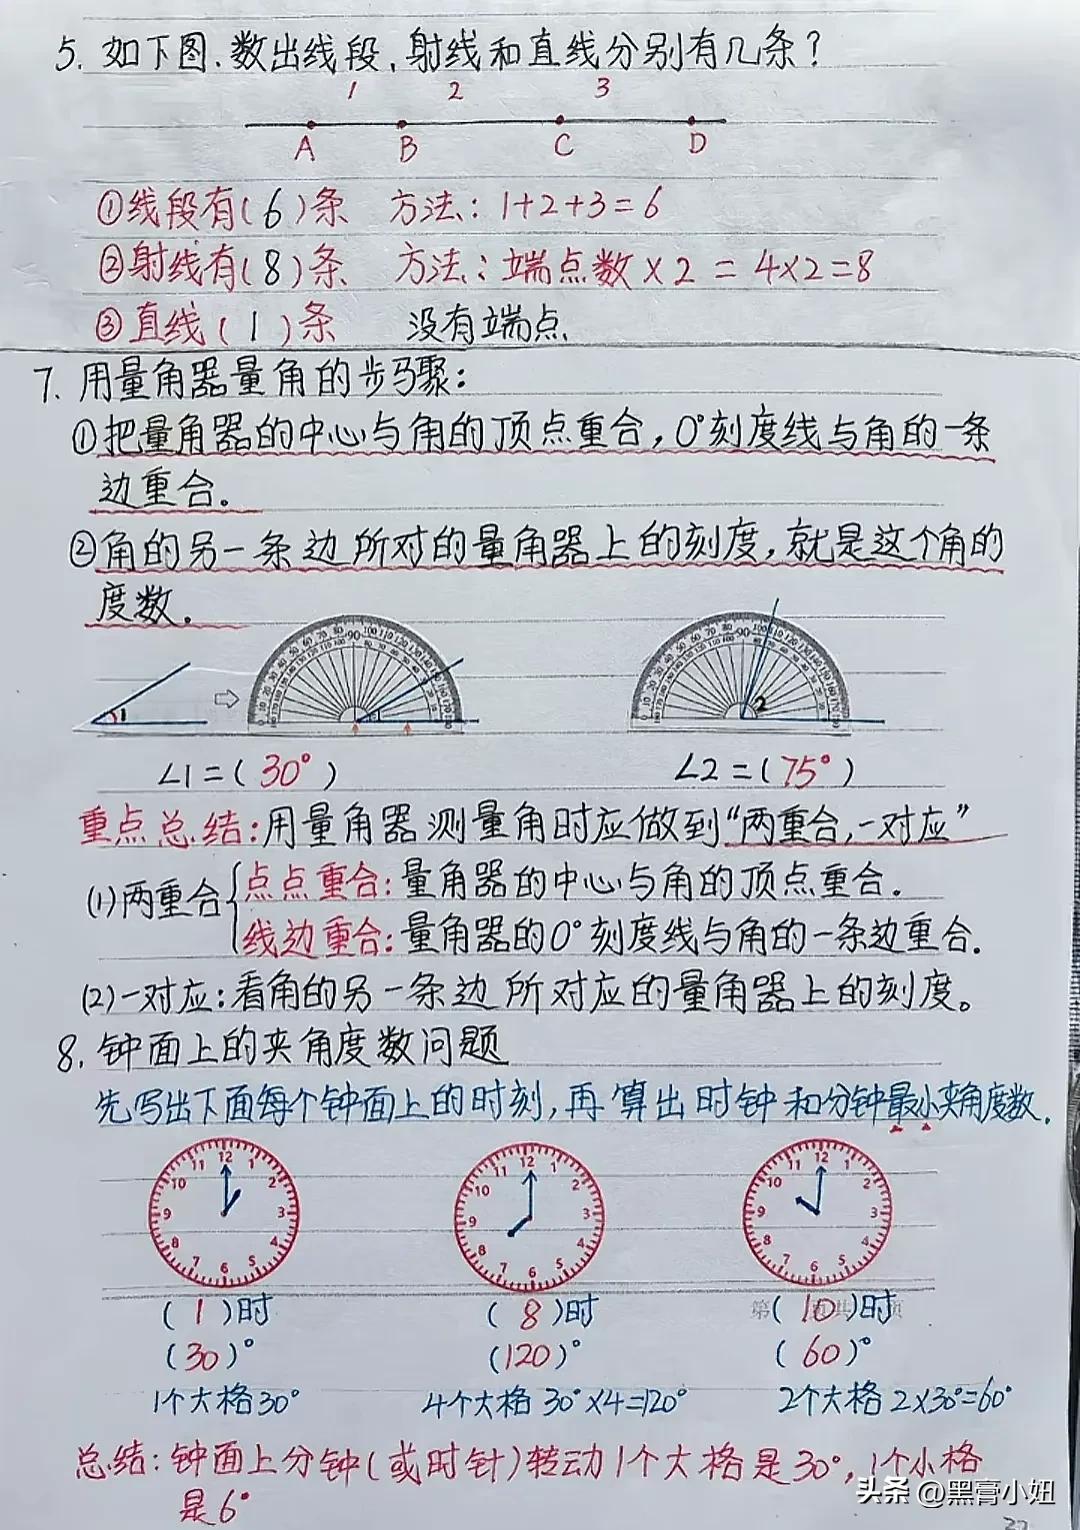 5. 如下图.数出线段,射线和直线分别有几条?
1 2 3
A B C D
①线段有(6)条 方法:1+2+3=6
②射线有(8)条 方法:端点数×2=4×2=8
③直线(1)条 没有端点.
7. 用量角器量角的步骤:
①把量角器的中心与角的顶点重合,0°刻度线与角的一条
边重合。
②角的另一条边所对的量角器上的刻度,就是这个角的
度数。
1 2
∠1=(30°) ∠2=(75°)
重点总结:用量角器测量角时应做到“两重合,一对应”
(1)两重合
点点重合:量角器的中心与角的顶点重合.
线边重合:量角器的0°刻度线与角的一条边重合.
(2)一对应:看角的另一条边所对应的量角器上的刻度。
8. 钟面上的夹角度数问题
先写出下面每个钟面上的时刻,再算出时钟和分钟最小夹角度数.
12 1 2 3 4 5 6 7 8 9 10 11
12 1 2 3 4 5 6 7 8 9 10 11
12 1 2 3 4 5 6 7 8 9 10 11
(1)时 (8)时 (10)时
(30)° (120)° (60)°
1个大格30° 4个大格 30°×4=120° 2个大格 2×30°=60°
总结:钟面上分钟(或时针)转动1个大格是30°,1个小格
是6°
头条 @黑膏小妞